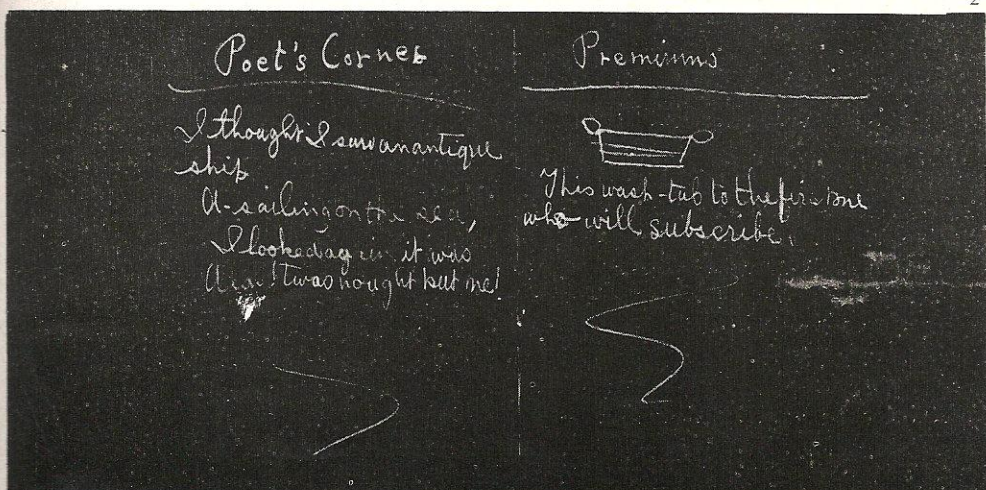 2
Poet's Corner
I thought I saw an antique
ship
A-sailing on the sea,
I looked again it was
'twas nought but me!
Premiums
This wash-tub to the first one
who will subscribe.